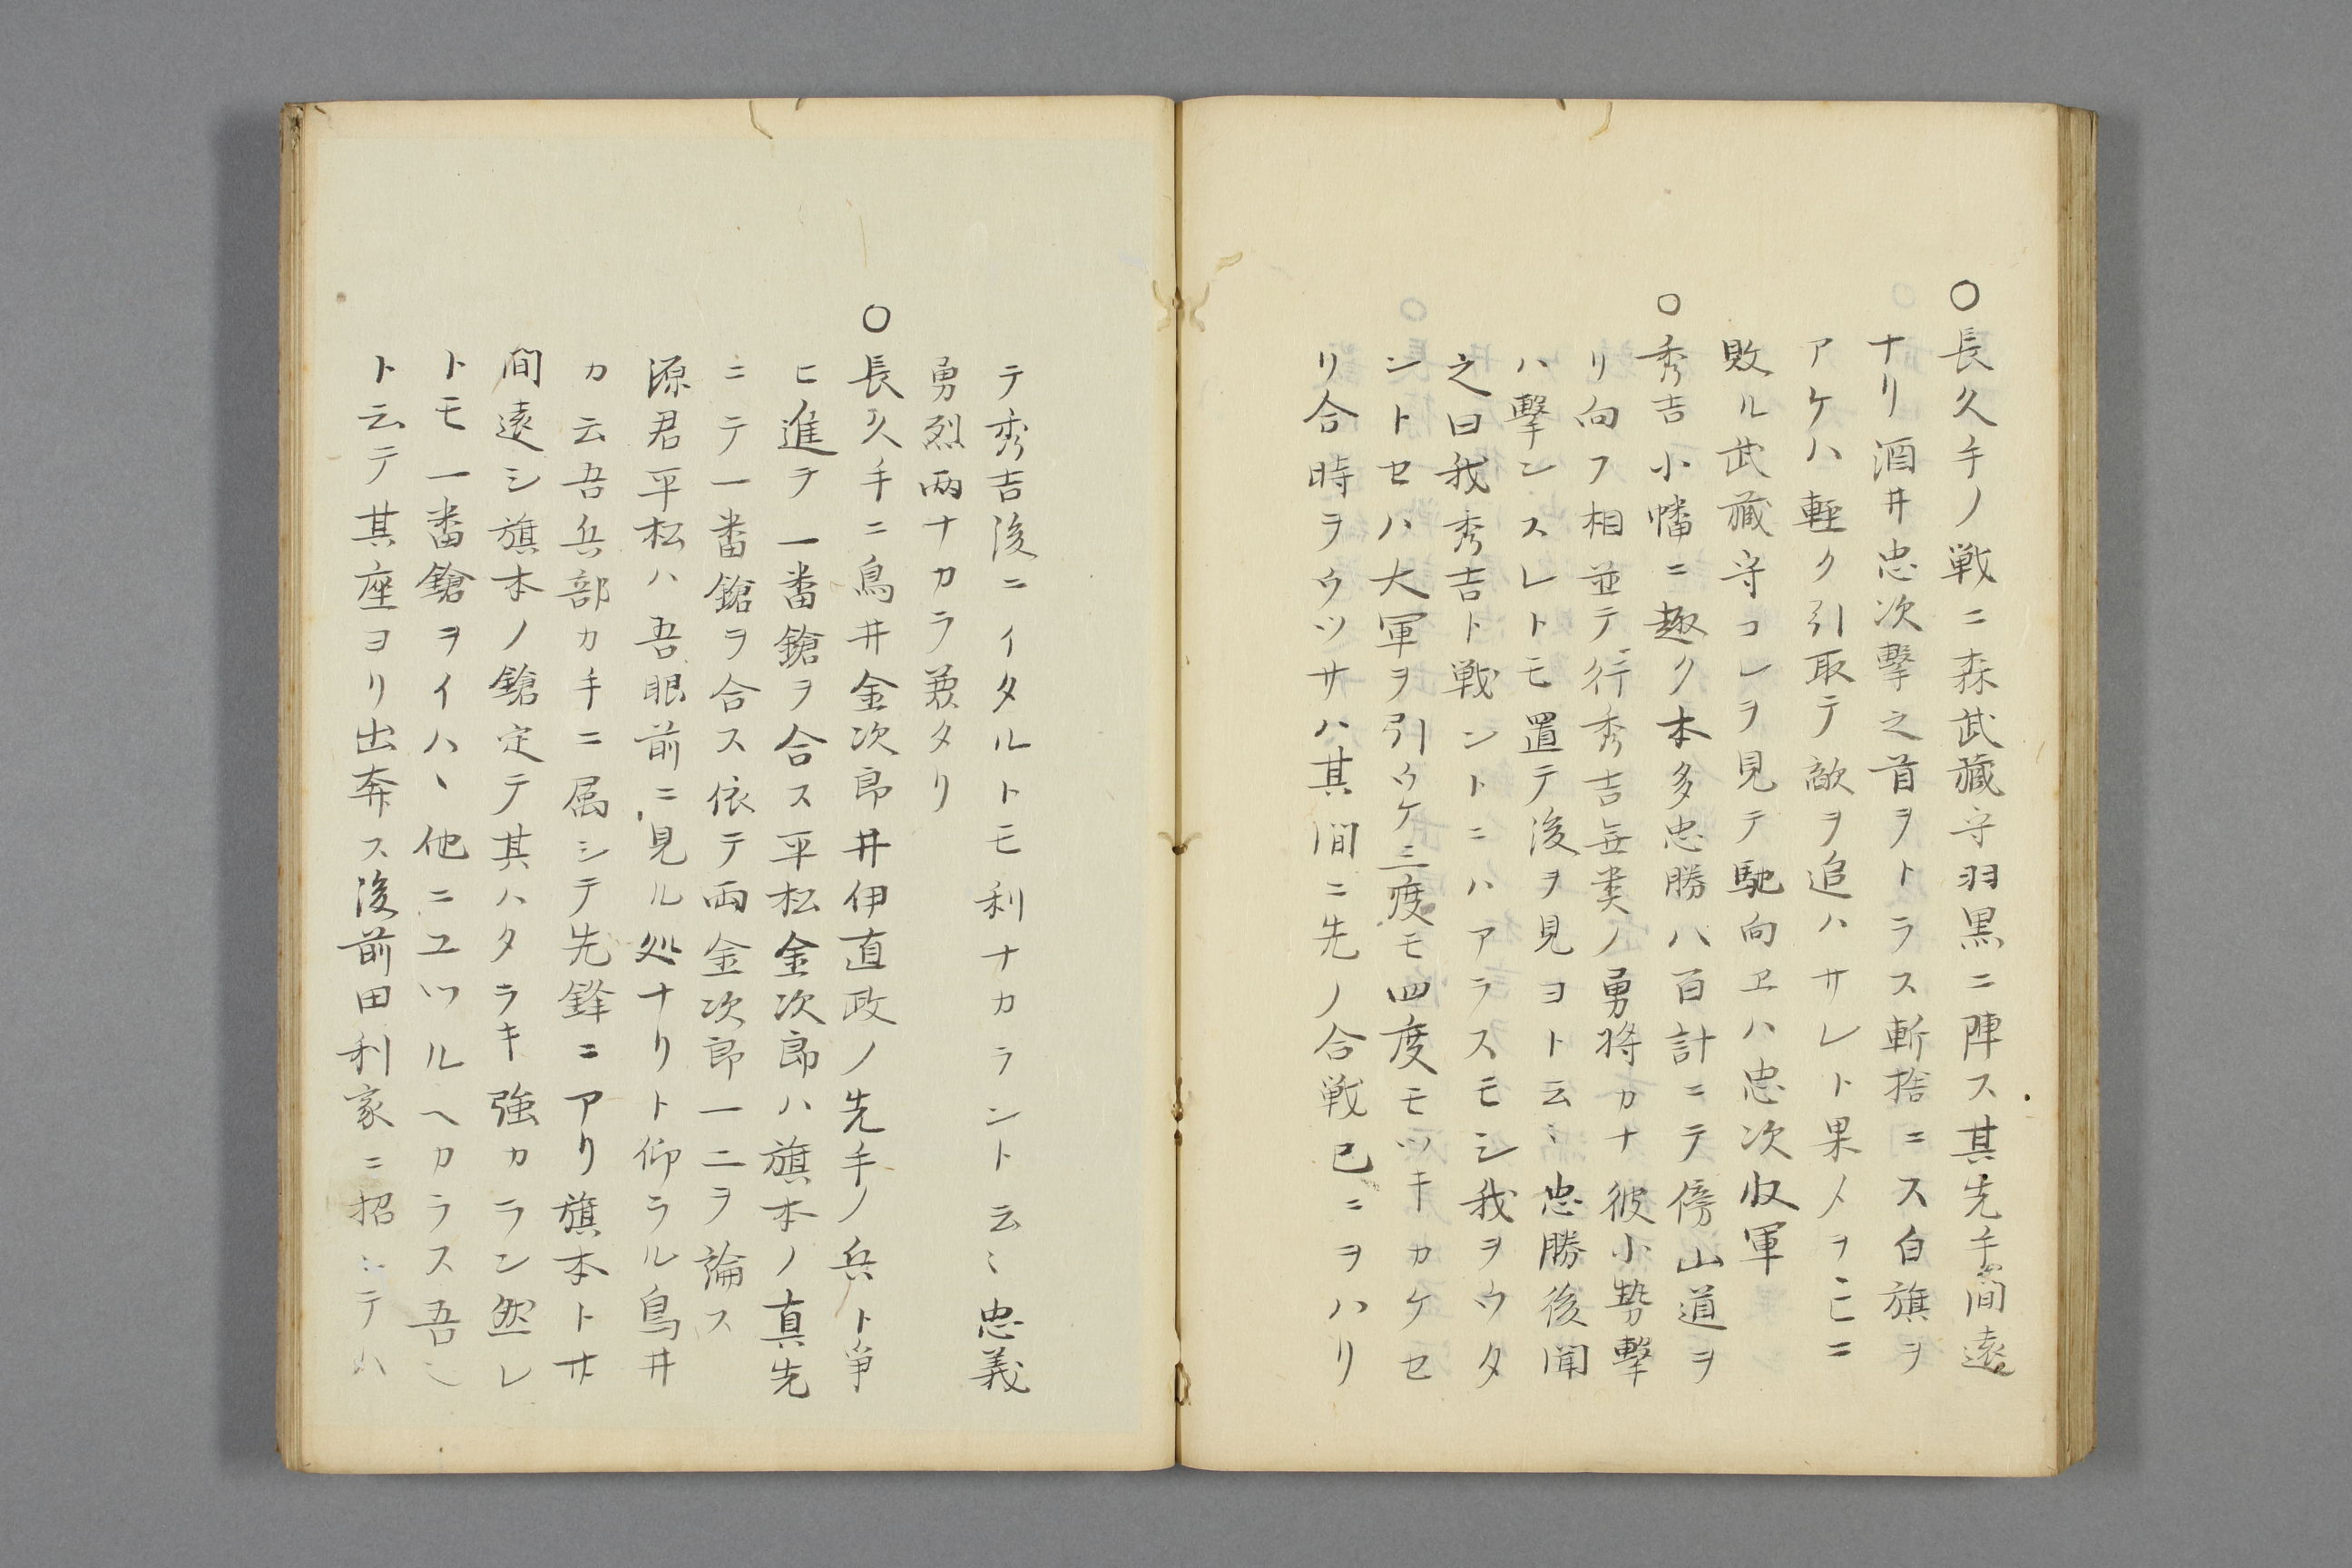 ○長久手ノ戦ニ森武藏守羽黒ニ陣ス其先手間遠
ナリ酒井忠次撃之首ヲトラス斬捨ニス白旗ヲ
アケハ軽ク引取テ敵ヲ追ハサレト果メヲ亡ニ
敗ル武藏守コレヲ見テ馳向ヱハ忠次収軍
○秀吉小幡ニ趣ク本多忠勝八百計ニテ傍山道ヲ
リ向フ相並テ行秀吉無类ノ勇将カナ彼小勢撃
ハ撃ンスレトモ置テ後ヲ見ヨト云〻忠勝後聞
之曰我秀吉ト戦ントニハアラスモシ我ヲウタ
ントセハ大軍ヲ引ウケ三度モ四度モツキカケセ
リ合時ヲウツサハ其間ニ先ノ合戦已ニヲハリ
テ秀吉後ニイタルトモ利ナカラント云〻忠義
勇烈両ナカラ兼タリ
○長久手ニ鳥井金次郎井伊直政ノ先手ノ兵ト爭
ヒ進テ一番鎗ヲ合ス平松金次郎ハ旗本ノ真先
ニテ一番鎗ヲ合ス依テ両金次郎一二ヲ論ス
源君平松ハ吾眼前ニ見ル処ナリト仰ラル鳥井
カ云吾兵部カ手ニ属シテ先鋒ニアリ旗本トサ
間遠シ旗本ノ鎗定テ其ハタラキ強カラン然レ
トモ一番鎗ヲイハヽ他ニユツルヘカラス吾
ト云テ其座ヨリ出奔ス後前田利家ニ招